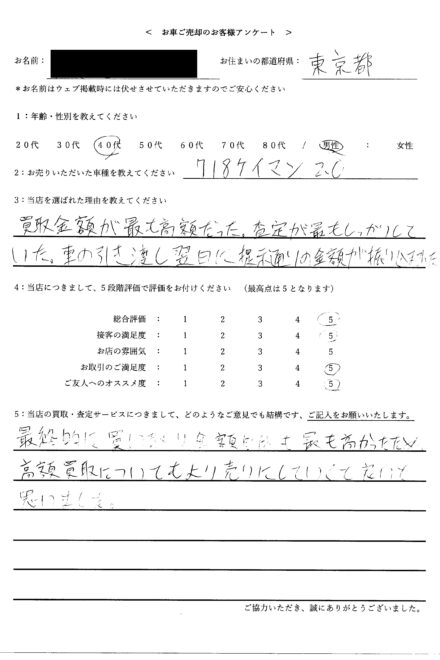 < お車ご売却のお客様アンケート >
お名前： お住まいの都道府県： 東京都
*お名前はウェブ掲載時には伏せさせていただきますのでご安心ください
1：年齢・性別を教えてください
20代 30代 40代 50代 60代 70代 80代 / 男性 ： 女性
2：お売りいただいた車種を教えてください 718ケイマン 2.0
3：当店を選ばれた理由を教えてください
買取金額が最も高額だった。査定が最もしっかりして
いた。車の引き渡し翌日に提示通りの金額が振り込まれた
4：当店につきまして、5段階評価で評価をお付けください （最高点は5となります）
総合評価 ： 1 2 3 4 5
接客の満足度 ： 1 2 3 4 5
お店の雰囲気 ： 1 2 3 4 5
お取引のご満足度 ： 1 2 3 4 5
ご友人へのオススメ度 ： 1 2 3 4 5
5：当店の買取・査定サービスにつきまして、どのようなご意見でも結構です、ご記入をお願いいたします。
最終的に 金額 最も高かった
高額買取についてもより売りにしていくて
思いました。
ご協力いただき、誠にありがとうございました。